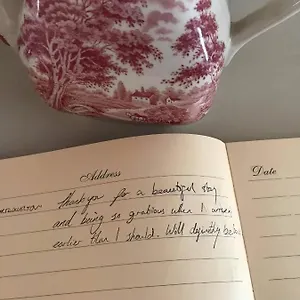 Address Date
Thank you for a beautiful stay
and being so gratious when I arrived
earlier than I should. Will definitely be